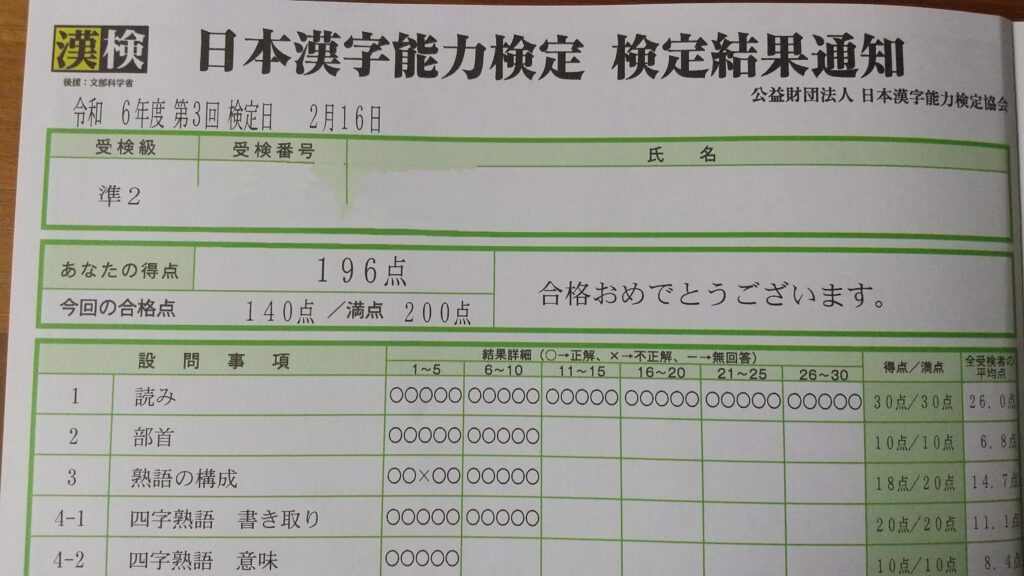 漢検
後援：文部科学省
日本漢字能力検定 検定結果通知
公益財団法人 日本漢字能力検定協会
令和 6年度 第3回 検定日 2月16日
受検級 受検番号 氏 名
準2
あなたの得点 196点
合格おめでとうございます。
今回の合格点 140点 ／満点 200点
設 問 事 項 結果詳細（○→正解、×→不正解、－→無回答） 得点／満点 全受検者の平均点
1～5 6～10 11～15 16～20 21～25 26～30
1 読み ○○○○○ ○○○○○ ○○○○○ ○○○○○ ○○○○○ ○○○○○ 30点／30点 26.0点
2 部首 ○○○○○ ○○○○○ 10点／10点 6.8点
3 熟語の構成 ○○×○○ ○○○○○ 18点／20点 14.7点
4-1 四字熟語 書き取り ○○○○○ ○○○○○ 20点／20点 11.1点
4-2 四字熟語 意味 ○○○○○ 10点／10点 8.4点